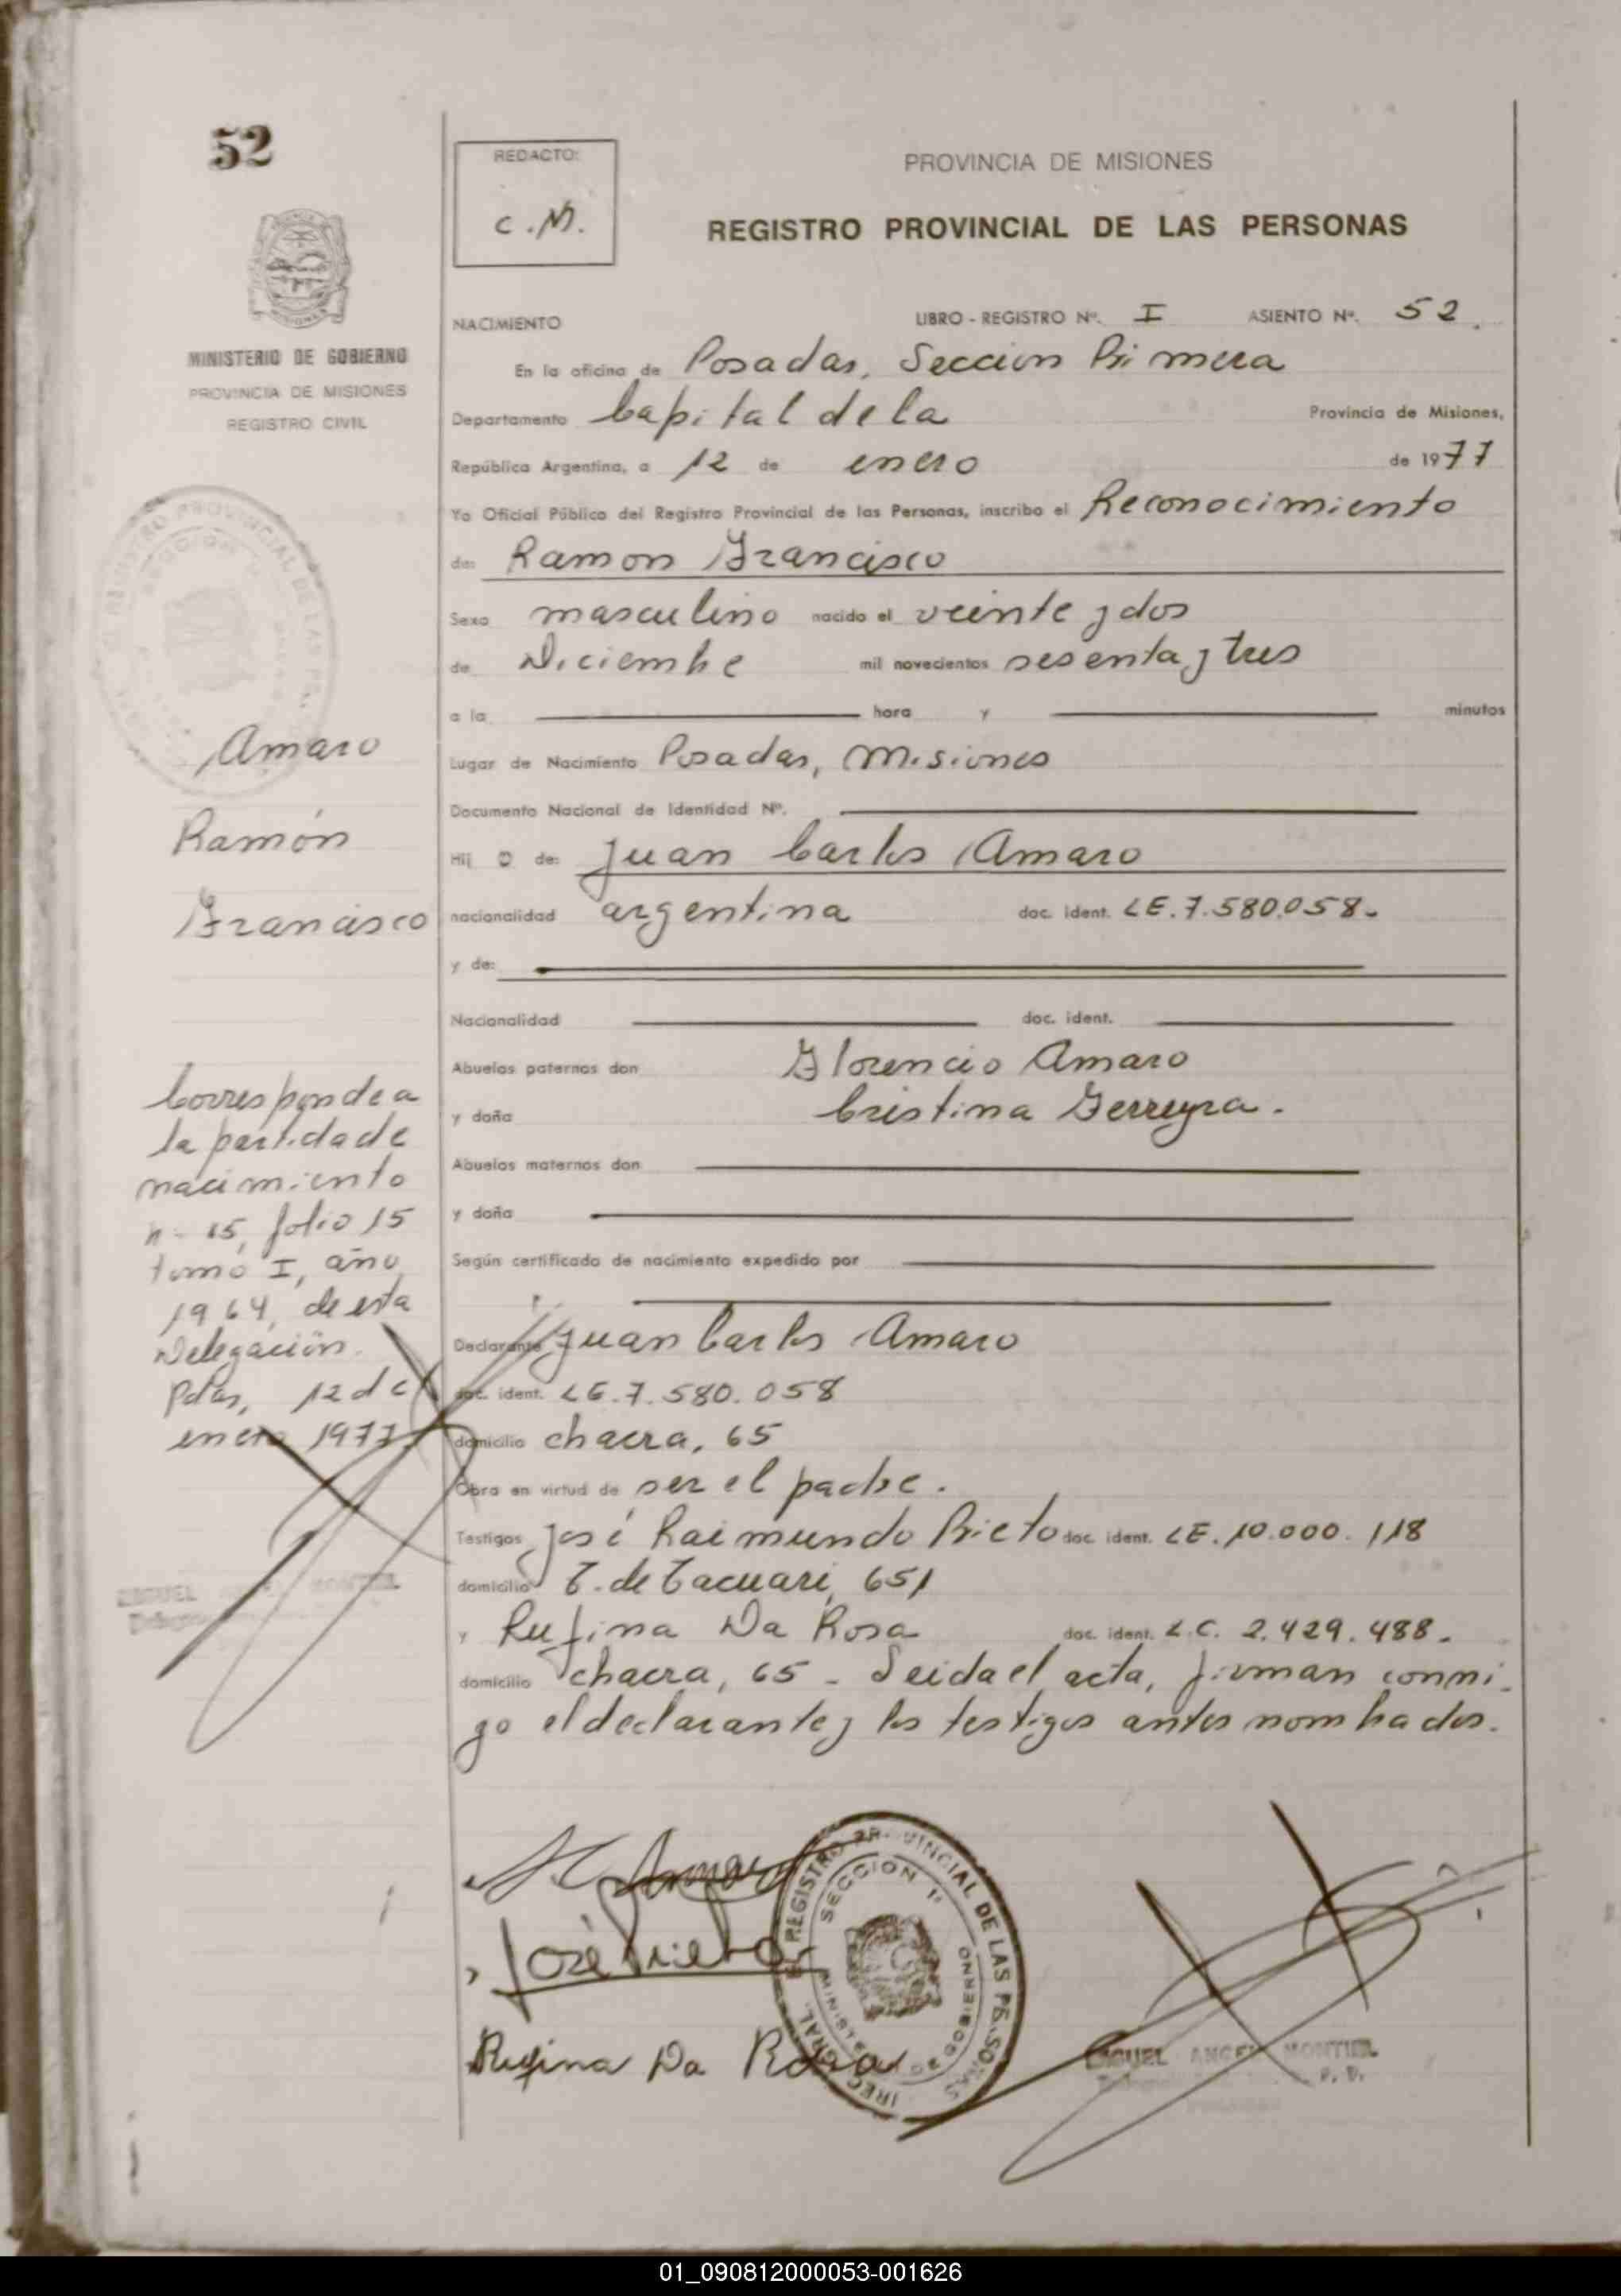 52
REDACTO:
C.M.
PROVINCIA DE MISIONES
REGISTRO PROVINCIAL DE LAS PERSONAS
MINISTERIO DE GOBIERNO
PROVINCIA DE MISIONES
REGISTRO CIVIL
NACIMIENTO LIBRO - REGISTRO Nº. I ASIENTO Nº. 52.
En la oficina de Posadas, Sección Primera
Departamento Capital de la Provincia de Misiones,
República Argentina, a 12 de enero de 1977
Yo Oficial Público del Registro Provincial de las Personas, inscribo el Reconocimiento
de: Ramon Francisco
Sexo masculino nacido el veinte y dos
de Diciembre mil novecientos sesenta y tres
a la hora y minutos
Lugar de Nacimiento Posadas, Misiones
Documento Nacional de Identidad Nº.
Hij o de: Juan Carlos Amaro
nacionalidad argentina doc. ident. LE. 7.580.058.
y de:
Nacionalidad doc. ident.
Abuelos paternos don Florencio Amaro
y doña Cristina Ferreyra.
Abuelos maternos don
y doña
Según certificado de nacimiento expedido por
Declarante Juan Carlos Amaro
doc. ident. LE. 7.580.058
domicilio chacra, 65
Obra en virtud de ser el padre.
Testigos José Raimundo Prieto doc. ident. LE. 10.000.118
domicilio T. de Tacuari, 651
y Rufina Da Rosa doc. ident. L.C. 2.429.488.
domicilio chacra, 65 - Leida el acta, firman conmi-
go el declarante y los testigos antes nombrados.
Amaro
Ramón
Francisco
Corresponde a
la partida de
nacimiento
n- 15, folio 15
tomo I, año
1964, de esta
Delegación.
Pdas, 12 de
enero 1977.
MIGUEL ANGEL MONTIEL
J.C. Amaro
José Prieto
Rufina Da Rosa
REGISTRO PROVINCIAL DE LAS PERSONAS
SECCION 1ª
MINISTERIO DE GOBIERNO
MIGUEL ANGEL MONTIEL
01_090812000053-001626